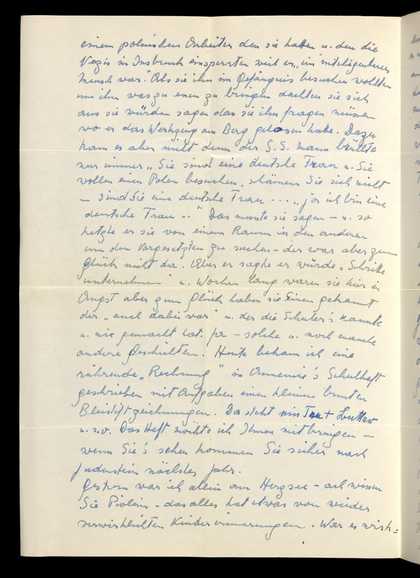 einem polnischen Arbeiter den sie hatten u. den die
Nazis in Insbruck einsperrten weil er "ein intelligenterer
Mensch war". Als sie ihn im Gefängnis besuchen wollten
um ihm was zu essen zu bringen dachten sie sich
aus sie würden sagen das sie ihn fragen müssen
wo er das Werkzeug am Berg gelassen habe. Dazu
kam es aber nicht denn der S.S. Mann brüllte
nur immer "Sie sind eine deutsche Frau u. Sie
wollen einen Polen besuchen, schämen Sie sich nicht
– sind Sie eine deutsche Frau .... "ja ich bin eine
deutsche Frau .." Das musste sie sagen – u. so
hetzte er sie von einem Raum in den anderen
um den Vorgesetzten zu suchen – der war aber zum
Glück nicht da. Aber er sagte er würde "Schritte
unternehmen" u. Wochen lang waren sie hier in
Angst aber zum Glück haben sie Einen gekannt
der "auch dabei war" u. der die Schuler's kannte
u. nix gemacht hat. ja – solche u. noch manche
andere Geschichten! Heute bekam ich eine
rührende "Rechnung" in Annemie's Schulheft
geschrieben mit Aufgaben einen kleinen bunten
Bleistiftzeichnungen. Da steht
u.s.w. Das Heft möchte ich Ihnen mitbringen –
wenn Sie's sehen kommen Sie sicher nach
Judenstein nächstes Jahr.
Gestern war ich allein am Bergsee – ach wissen
Sie – das alles hat etwas von wieder
verwirklichten Kindererinnerungen. War es wirk=